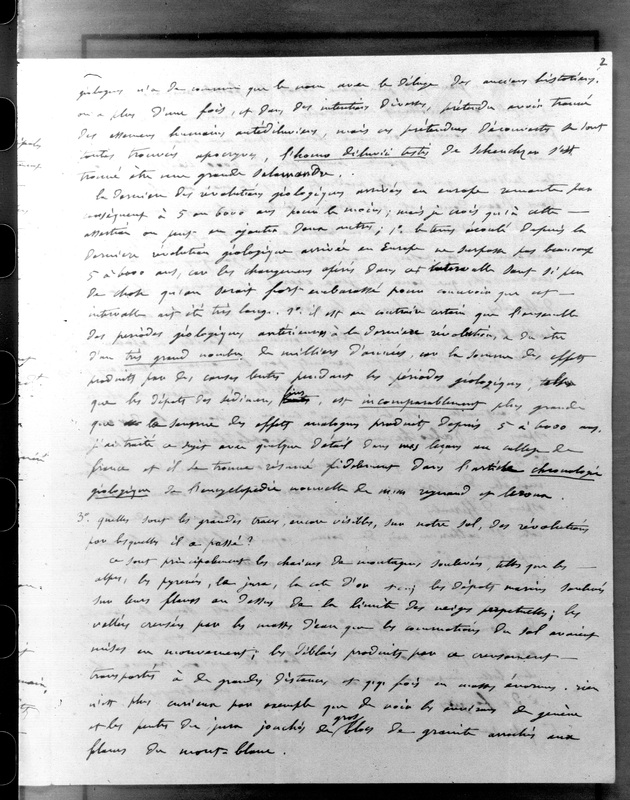 2
géologues n'a de commun que le nom avec le déluge des anciens historiens.
on a plus d'une fois, et dans des intentions diverses, prétendu avoir trouvé
des ossemens humains antédiluviens, mais ces prétendues découvertes se sont
toutes trouvées apocryves, l'homo diluvii testis de Scheuchzer s'est
trouvé etre une grande Salamandre.
la derniere des révolutions géologiques arrivées en europe remonte par
conséquent à 5 ou 6000 ans pour le moins; mais je crois qu'à cette
assertion on peut en ajouter deux autres; 1º. le tems écoulé depuis la
derniere révolution géologique arrivée en Europe ne surpasse pas beaucoup
5 à 6000 ans, car les changemens opérés dans cet intervalle sont si peu
de chose qu'on serait fort embarassé pour concevoir que cet
intervalle ait été très long. 2º. il est au contraire certain que l'ensemble
des periodes géologiques antérieures à la derniere révolution, a du etre
d'un très grand nombre de milliers d'années, car la somme des effets
produits par des causes lentes pendant les périodes géologiques, telles
que les dépôts des sédimens, est incomparablement plus grande
que la somme des effets analogues produits depuis 5 à 6000 ans.
j'ai traité ce sujet avec quelque détail dans mes leçons au collège de
france et il se trouve résumé fidèlement dans l'article chronologie
géologique de l'encyclopédie nouvelle de mm reynaud et leroux.
3º. quelles sont les grandes traces, encore visibles, sur notre sol, des révolutions
par lesquelles il a passé?
ce sont principalement les chaines de montagnes soulevées, telles que les
alpes, les pyrenées, le jura, la cote d'or et les dépôts marins soulevés
sur leurs flancs au dessus de la limite des neiges perpetuelles; les
vallées creusées par les masses d'eau que les commotions du sol avaient
mises en mouvement; les déblais produits par ce creusement
transportés à de grandes distances et qqfois en masses énormes. rien
n'est plus curieux par exemple que de voir les environs de genève
et les pentes du jura jonchés de gros blocs de granite arrachés aux
flancs du mont-blanc.